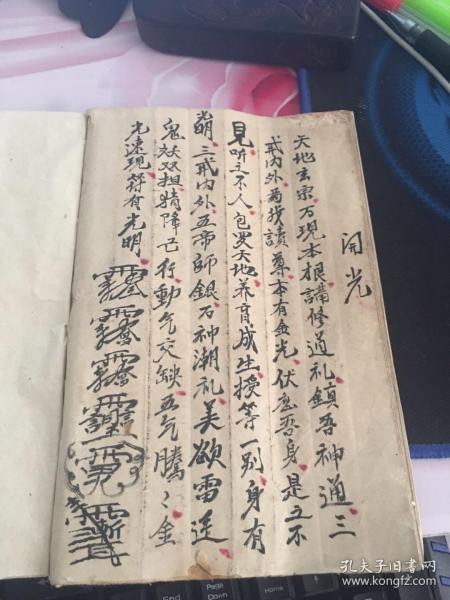 開光
天地玄宗万現本根講修道礼鎮吾神通三
戒内外为找讀尊本有金光伏応吾身是之不
見听之不人包罗天地养育成生授等一别身有
萌三戒内外五帝師銀百神潮礼美欲雷廷
鬼双双担精降亡行動气交缺五气騰々金
光速現符有光明
孔夫子旧书网
www.kongfz.com
Page Down
End